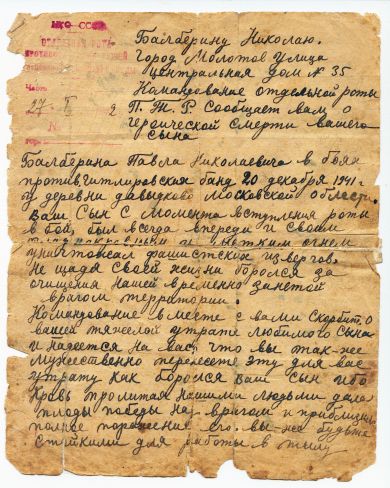 НКО СССР
ОТДЕЛЬНАЯ РОТА
Часть
27
2
N
Балберину Николаю.
город Молотов улица
центральная дом № 35
Командование отдельной роты
П.Т.Р. Сообщает вам о
героической смерти вашего
сына
Балберина Павла Николаевича в боях
против гитлировския банд 20 декабря 1941 г
у деревни давыдково Московской област.
Ваш Сын С Момента вступления роты
в бой, был всегда впереди и своим
и метким огнем
уничтожал фашистских извергов.
Не щадя своей жизни боролся за
очищения нашей временно занетой
врагом территории.
Командование вместе с вами скорбит о
вашей тяжелой утрате любимого Сына
и надеется на вас, что вы так-же
мужественно перенесете эту для вас
утрату как боролся ваш сын ибо
Кровь пролитая нашими людьми дала
плоды победы над врагом и приблизила
полное поражение его. вы-же будьте
стойкими для работы в тылу